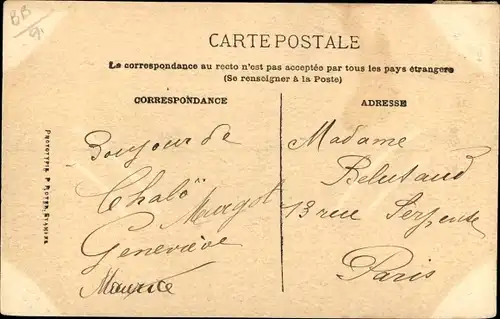 BB
CARTE POSTALE
La correspondance au recto n'est pas acceptée par tous les pays étrangers
(Se renseigner à la Poste)
CORRESPONDANCE
ADRESSE
Bonjour de
Chalô
Margot
Geneviève
Maurice
Madame
Belutaud
13 rue Serpente
Paris
PHOTOTYPIE P. ROYER, ETAMPES